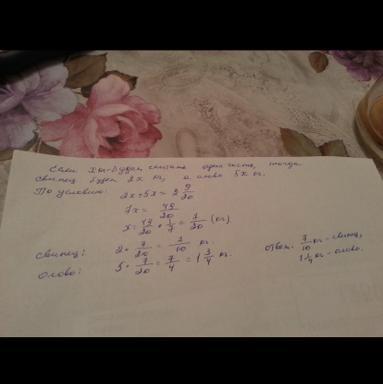 Если x кг будем считать одна часть, тогда
свинец будет 2x кг, а олово 5x кг.
По условию: 2x+5x = 2 9/20
7x = 49/20
x = 49/20 · 1/7 = 7/20 (кг)
свинец: 2 · 7/20 = 7/10 кг.
олово: 5 · 7/20 = 7/4 = 1 3/4 кг.
ответ: 7/10 кг - свинец,
кг - олово.